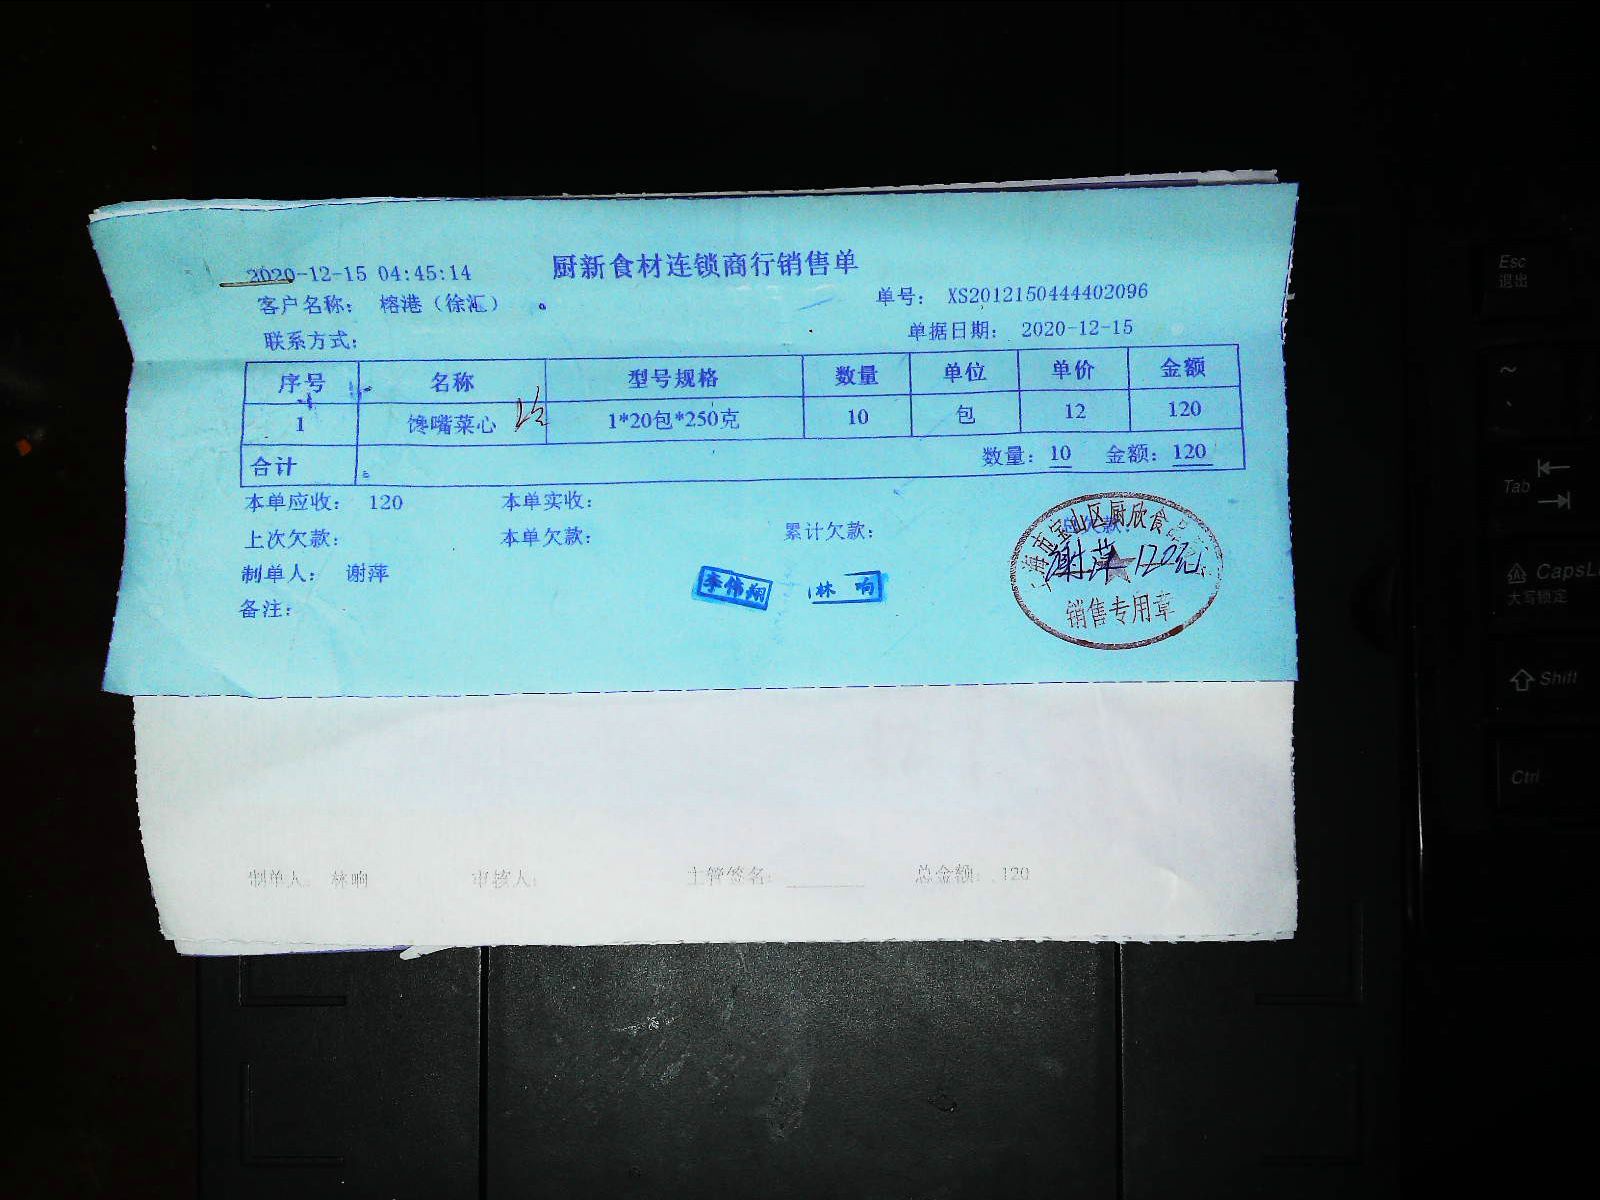 2020-12-15 04:45:14
厨新食材连锁商行销售单
客户名称： 榕港（徐汇）
单号： XS2012150444402096
联系方式：
单据日期： 2020-12-15
序号 名称 型号规格 数量 单位 单价 金额
1 馋嘴菜心 1*20包*250克 10 包 12 120
合计 数量：10 金额：120
本单应收： 120 本单实收：
上次欠款： 本单欠款： 累计欠款：
制单人： 谢萍
李伟翔 林响
备注：
上海市宝山区厨欣食品
谢萍 120元
销售专用章
制单人： 林响 审核人： 主管签名： 总金额： 120
Esc
退出
~
Tab
CapsL
大写锁定
Shift
Ctrl